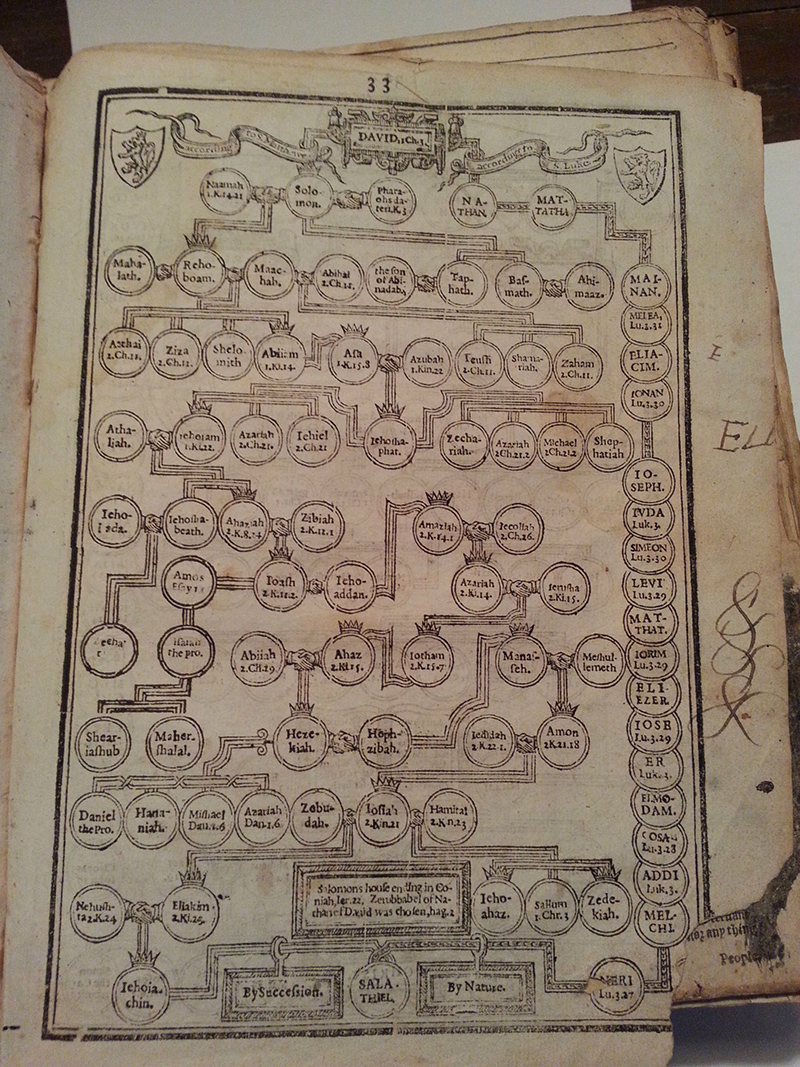 33
DAVID, 1Ch.3
according
to S. Matthew
according to
S. Luke
Naamah
1.K.14.21
Solo-
mon.
Phara-
ohs da-
NA-
THAN.
MAT-
TATHA
Maha-
lath.
Reho-
boam.
Maac-
hah.
Abihal
2.Ch.11.
the son
of Abi-
nadab,
Tap-
hath.
Bas-
math.
Ahi-
maaz.
MAI-
NAN.
MELEA,
Lu.3.31
Atthai
2.Ch.11.
Ziza
2.Ch.11.
Shelo-
mith
Abiiam
1.Ki.14.
Asa
1.K.15.8
Azubah
1.Kin.22
Ieush
2.Ch.11.
Shama-
riah.
Zaham
2.Ch.11.
ELIA-
CIM.
IONAN
Lu.3.30
Atha-
liah.
Iehoram
1.Ki.22.
Azariah
2.Ch.21.
Iehiel
2.Ch.21
Iehosha-
phat.
Zecha-
riah.
Azariah
2Ch.21.2
Michael
2Ch.21.2
Shep-
hatiah
IO-
SEPH.
Ieho-
iada.
Iehosha-
beath.
Ahaziah
2.K.8.24
Zibiah
2.K.12.1
Amaziah
2.K.14.1
Iecoliah
2.Ch.26.
IVDA
Luk.3.
SIMEON
Lu.3.30
Amos
Esay 1
Ioash
2.K.11.2.
Ieho-
addan.
Azariah
2.Ki.14.
Ierusha
2.Ki.15.
LEVI
Lu.3.29
MAT-
THAT.
Isaiah
the pro.
Abiiah
2.Ch.29.
Ahaz
2.Ki.15.
Iotham
2.K.15.7
Manas-
seh.
Meshul-
lemeth
IORIM
Lu.3.29
ELI-
EZER
Shear-
iashub
Maher-
shalal.
Heze-
kiah.
Heph-
zibah.
Iedidah
2.K.22.1.
Amon
2K.21.18
IOSE
Lu.3.29
ER
Luk.3.
Daniel
the Pro.
Hana-
niah.
Mishael
Dan.1.6
Azariah
Dan.1.6.
Zebu-
dah.
Iosiah
2.Kin.21
Hamital
2.Kin.23
ELMO-
DAM.
COSAM
Lu.3.28
Nehush-
ta 2.K.24
Eliakim
2.Ki.25.
Salomons house ending in Co-
niah, Ier.22, Zerubbabel of Na-
than of David was chosen, hag.2
Ieho-
ahaz.
Sallum
1.Chr.3
Zede-
kiah.
ADDI
Luk.3.
MEL-
CHI.
Iehoia-
chin.
By Succession.
SALA-
THIEL
By Nature.
NERI
Lu.3.27
any thin
People